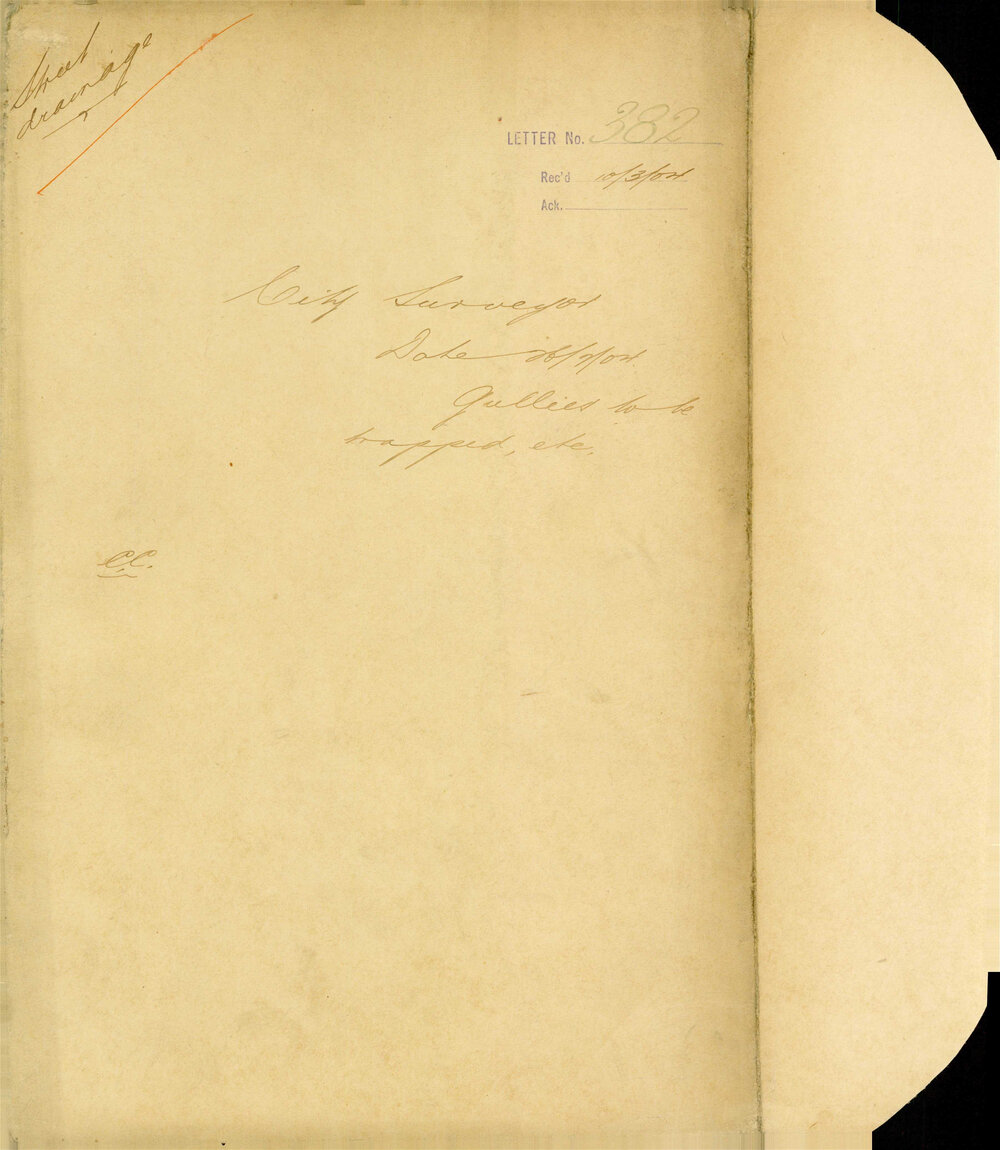 Street
drainage
LETTER No. 382
Rec'd 10/3/04
Ack.
City Surveyor
Date 26/2/04.
Gullies to be
trapped, etc.
C.C.